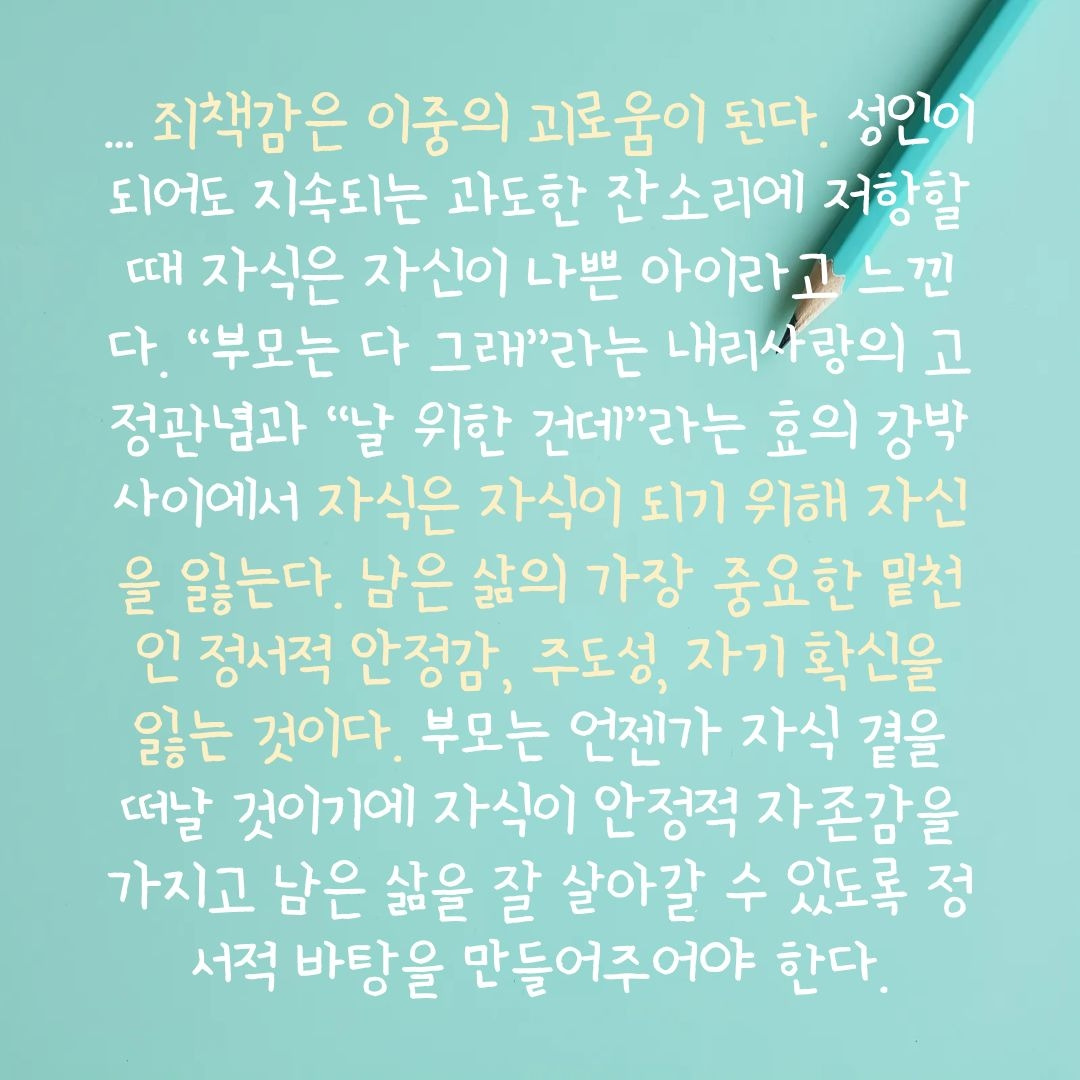 ... 죄책감은 이중의 괴로움이 된다. 성인이
되어도 지속되는 과도한 잔소리에 저항할
때 자식은 자신이 나쁜 아이라고 느낀
다. “부모는 다 그래”라는 내리사랑의 고
정관념과 “날 위한 건데”라는 효의 강박
사이에서 자식은 자식이 되기 위해 자신
을 잃는다. 남은 삶의 가장 중요한 밑천
인 정서적 안정감, 주도성, 자기 확신을
잃는 것이다. 부모는 언젠가 자식 곁을
떠날 것이기에 자식이 안정적 자존감을
가지고 남은 삶을 잘 살아갈 수 있도록 정
서적 바탕을 만들어주어야 한다.